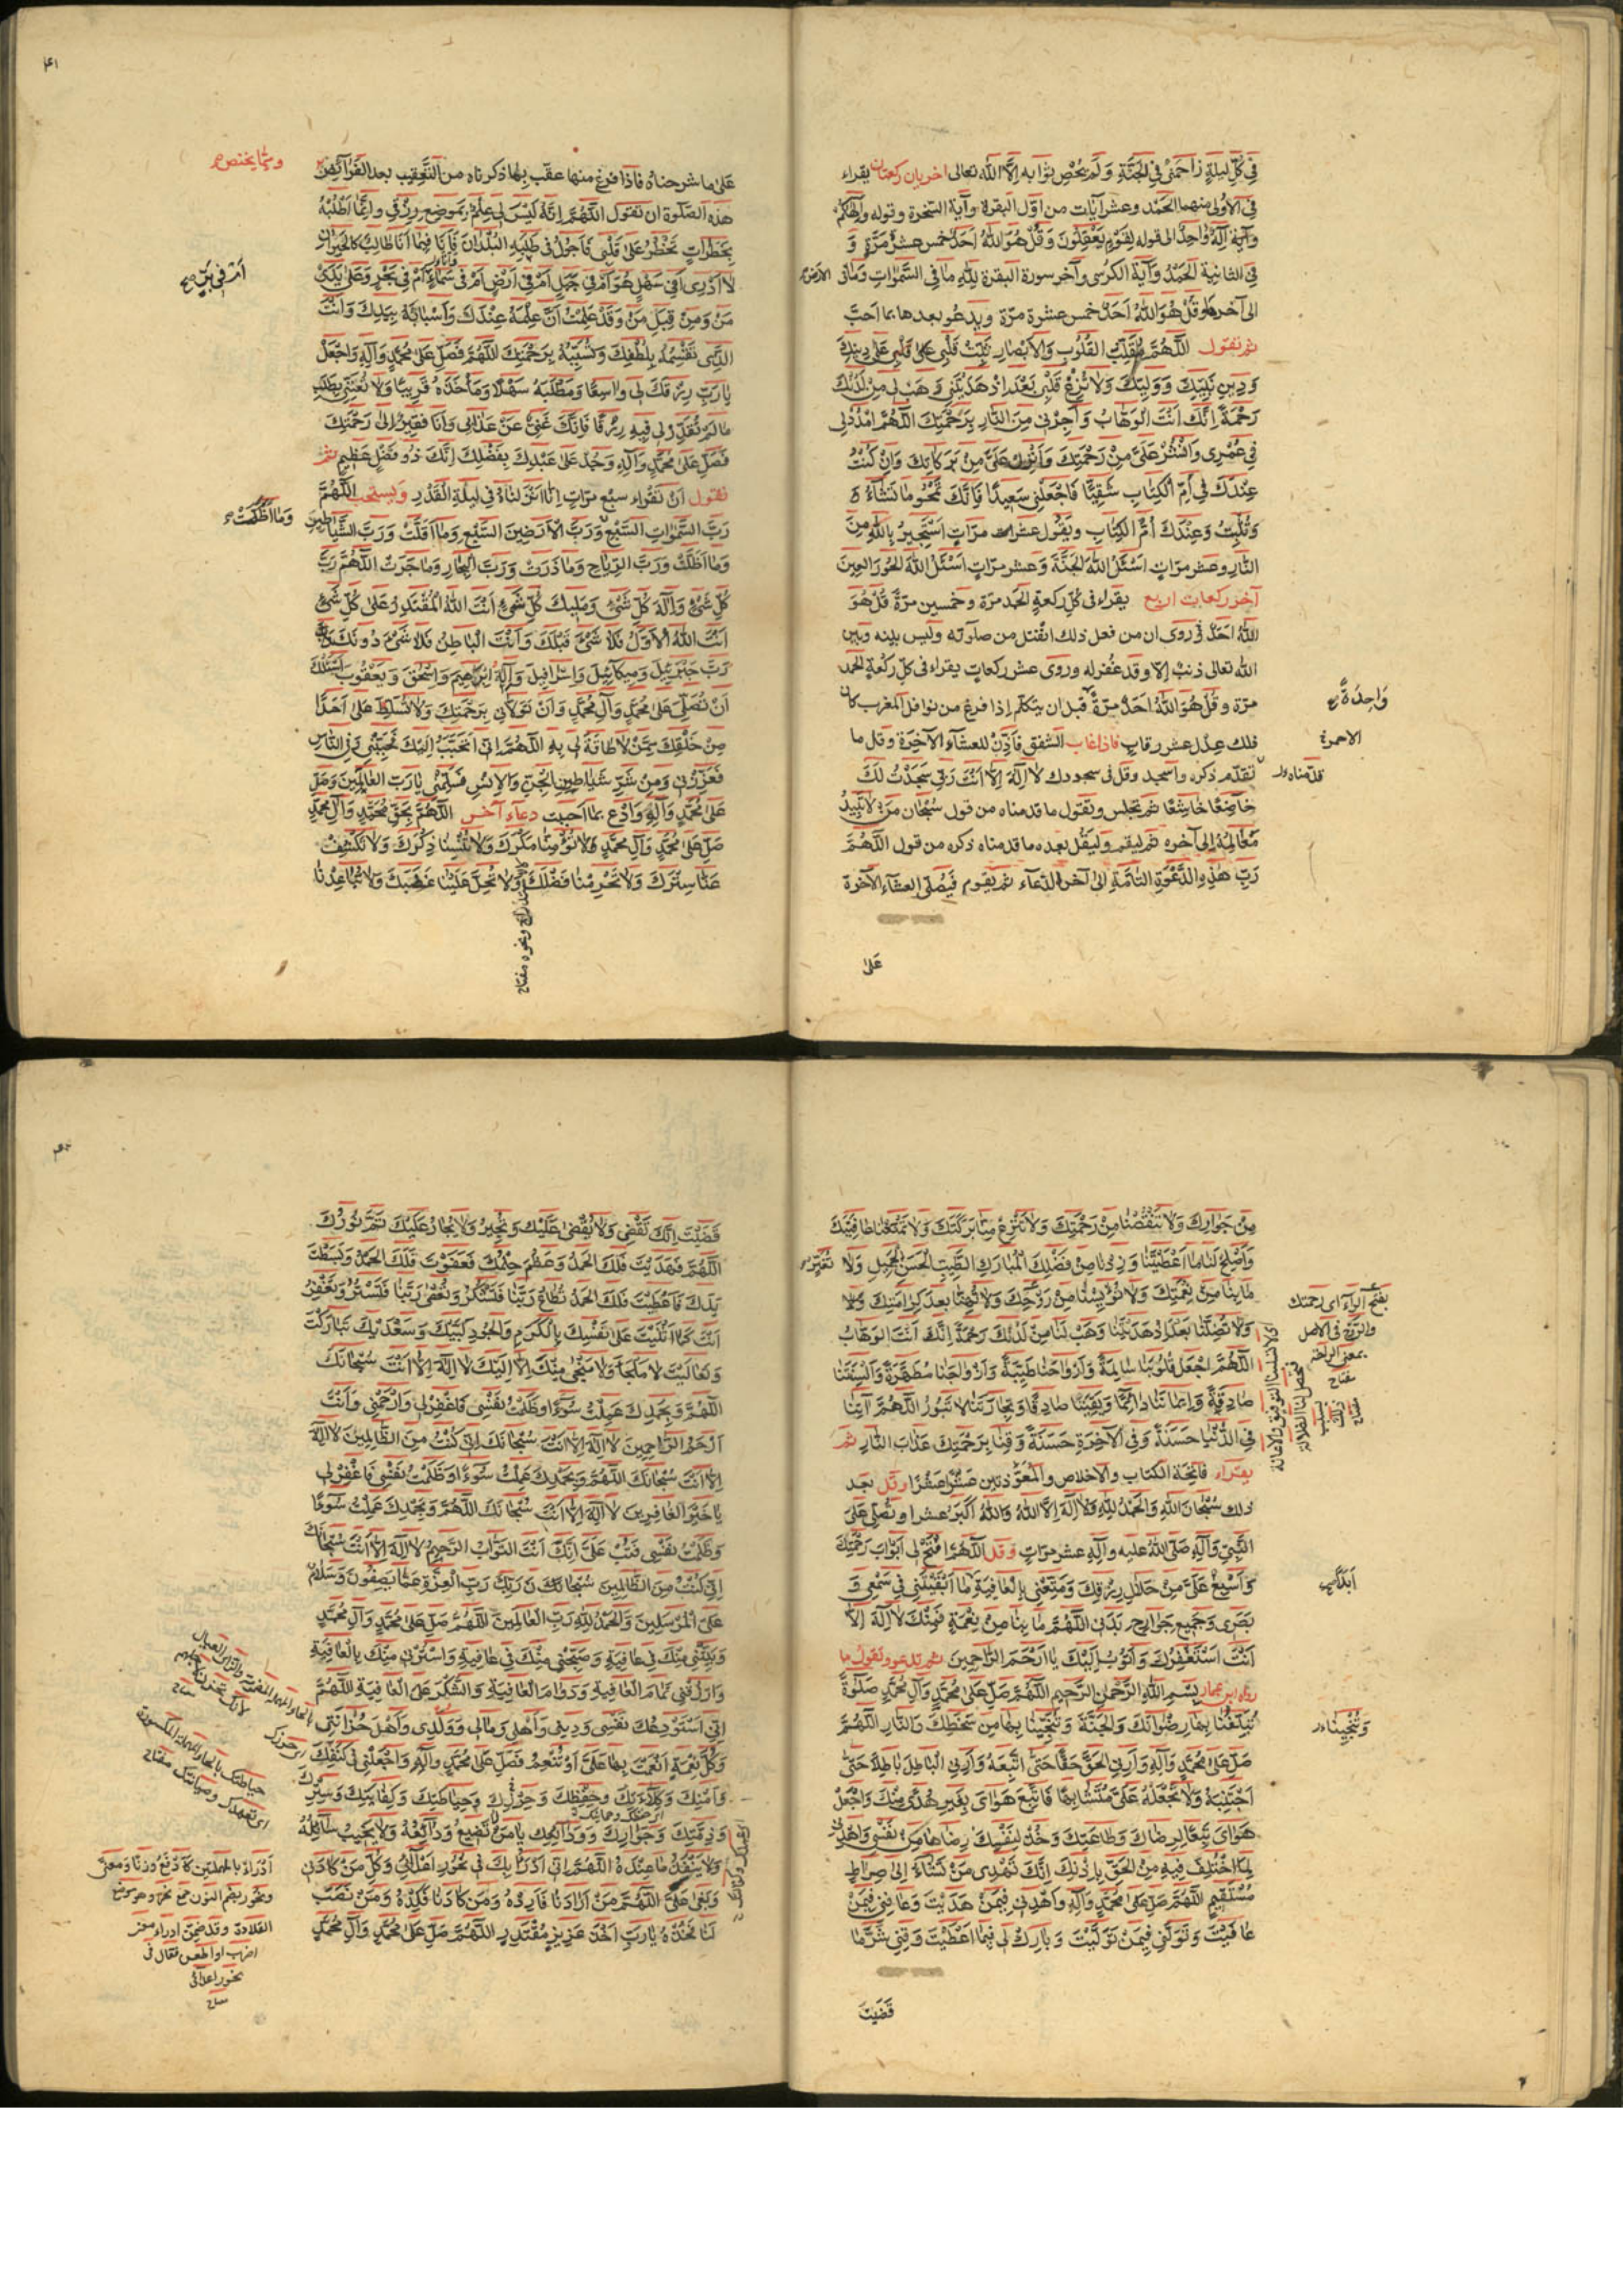 في كل ليلة زاحمني في الجنة ولم يحص ثوابه إلا الله تعالى اخريان ركعتان يقراء
في الاولى منهما الحمد وعشر آيات من اول البقرة وآية السخرة وقوله والهكم
وآية إله واحد الى قوله لقوم يعقلون وقل هو الله احد خمس عشر مرة و
في الثانية الحمد وآية الكرسي وآخر سورة البقرة لله ما في السموات وما في الارض
الى آخرها وقل هو الله احد خمس عشرة مرة ويدعو بعدها بما احب
ثم تقول اللهم مقلب القلوب والابصار ثبت قلبي على دينك
ودين نبيك ووليك ولا تزغ قلبي بعد اذ هديتني وهب لي من لدنك
رحمة انك انت الوهاب وأجرني من النار برحمتك اللهم امدد لي
في عمري وانشر علي من رحمتك وانزل علي من بركاتك وان كنت
عندك في ام الكتاب شقيا فاجعلني سعيدا فانك تمحو ما تشاء و
وتثبت وعندك ام الكتاب ويقول عشر مرات استجير بالله من
النار وعشر مرات اسئل الله الجنة وعشر مرات اسئل الله الحور العين
آخر ركعات اربع يقراء في كل ركعة الحمد مرة وخمسين مرة قل هو
الله احد فروى ان من فعل ذلك انفتل من صلوته وليس بينه وبين
الله تعالى ذنب الا وقد غفر له وروى عشر ركعات يقراء في كل ركعة الحمد
مرة وقل هو الله احد مرة قبل ان يتكلم اذا فرغ من نوافل المغرب كان
واحدة
ذلك عدل عشر رقاب فاذا غاب الشفق فأذن للعشاء الآخرة وقل ما
الاحمر
تقدم ذكره واسجد وقل في سجودك لا اله الا انت ربي سجدت لك
قدمناه
خاضعا خاشعا ثم تجلس وتقول ما قدمناه من قول سبحان من لا تبيد
معالمه الى آخره ثم ليقم وليقل بعده ما قدمناه ذكره من قول اللهم
رب هذه الدعوة التامة الى آخر الدعاء ثم يقوم فيصلي العشاء الآخرة
على
۴۱
على ما شرحناه فاذا فرغ منها عقب بما ذكرناه من التعقيب بعد الفرائض
ومما يختص
هذه الصلوة ان تقول اللهم انه ليس لي علم بموضع رزقي وانما اطلبه
بخطرات تخطر على قلبي فاجول في طلبه البلدان فأنا فيما انا طالب كالحيران
لا ادري افي سهل هو ام في جبل ام في ارض ام في سماء ام في بحر وعلى يدي
ام في بر
من ومن قبل من وقد علمت ان علمه عندك واسبابه بيدك وانت
الذي تقسمه بلطفك وتسببه برحمتك اللهم فصل على محمد وآله واجعل
يا رب رزقك لي واسعا ومطلبه سهلا ومأخذه قريبا ولا تعنني بطلب
ما لم تقدر لي فيه رزقا فانك غني عن عذابي وانا فقير الى رحمتك
فصل على محمد وآله وجد على عبدك بفضلك انك ذو فضل عظيم ثم
تقول ان تقراء سبع مرات انا انزلناه في ليلة القدر ويستحب اللهم
رب السموات السبع ورب الارضين السبع وما اقلت ورب الشياطين
وما اظلت ورب الرياح وما ذرت ورب البحار وما جرت اللهم رب
كل شيء واله كل شيء ومليك كل شيء انت الله المقتدر على كل شيء
انت الله الاول فلا شيء قبلك وانت الباطن فلا شيء دونك
رب جبرئيل وميكائيل واسرافيل واله ابرهيم واسحق ويعقوب اسئلك
ان تصلي على محمد وآل محمد وان تولاني برحمتك ولا تسلط علي احدا
من خلقك ممن لا طاقة لي به اللهم اني اتحبب اليك فحببني وفي الناس
فعززني ومن شر شياطين الجن والانس فسلمني يا رب العالمين وصل
على محمد وآله وادع بما احببت دعاء آخر اللهم بحق محمد وآل محمد
صل على محمد وآل محمد ولا تؤمنا مكرك ولا تنسنا ذكرك ولا تكشف
عنا سترك ولا تحرمنا فضلك ولا تحل علينا غضبك ولا تباعدنا
من جوارك ولا تنقصنا من رحمتك ولا تنزع منا بركتك ولا تمنعنا عافيتك
واصلح لنا ما اعطيتنا وزدنا من فضلك المبارك الطيب الحسن الجميل ولا تغير
ما بنا من نعمتك ولا تؤيسنا من روحك ولا تهنا بعد كرامتك ولا
بفتح الراء اي رحمتك
ولا تضلنا بعد اذ هديتنا وهب لنا من لدنك رحمة انك انت الوهاب
اللهم اجعل قلوبنا سالمة وارواحنا طيبة وازواجنا مطهرة والسنتنا
صادقة وايماننا دائما ويقيننا صادقا وتجارتنا لا تبور اللهم آتنا
في الدنيا حسنة وفي الآخرة حسنة وقنا برحمتك عذاب النار ثم
يقراء فاتحة الكتاب والاخلاص والمعوذتين عشرا عشرا وقل بعد
ذلك سبحان الله والحمد لله ولا اله الا الله والله اكبر عشرا وتصلي على
النبي وآله صلى الله عليه وآله عشر مرات وقل اللهم افتح لي ابواب رحمتك
واسبغ علي من حلال رزقك ومتعني بالعافية ما ابقيتني في سمعي و
ابدا
بصري وجميع جوارح بدني اللهم ما بنا من نعمة فمنك لا اله الا
انت استغفرك واتوب اليك يا ارحم الراحمين ثم تدعو وتقول ما
رواه ابن عمار بسم الله الرحمن الرحيم اللهم صل على محمد وآل محمد صلوة
تبلغنا بها رضوانك والجنة وتنجينا بها من سخطك والنار اللهم
صل على محمد وآله وارني الحق حقا حتى اتبعه وارني الباطل باطلا حتى
اجتنبه ولا تجعله علي متشابها فاتبع هواي بغير هدى منك واجعل
هواي تبعا لرضاك وطاعتك وخذ لنفسك رضاها من نفسي واهدني
لما اختلف فيه من الحق باذنك انك تهدي من تشاء الى صراط
مستقيم اللهم صل على محمد وآله واهدني فيمن هديت وعافني فيمن
عافيت وتولني فيمن توليت وبارك لي فيما اعطيت وقني شر ما
قضيت
قضيت انك تقضي ولا يقضى عليك وتجير ولا يجار عليك تم نورك
اللهم فهديت فلك الحمد وعظم حلمك فعفوت فلك الحمد وبسطت
يدك فاعطيت فلك الحمد تطاع ربنا فتشكر وتعصى ربنا فتستر وتغفر
انت كما اثنيت على نفسك بالكرم والجود لبيك وسعديك تباركت
وتعاليت لا ملجأ ولا منجى منك الا اليك لا اله الا انت سبحانك
اللهم وبحمدك عملت سوءا وظلمت نفسي فاغفر لي وارحمني وانت
ارحم الراحمين لا اله الا انت سبحانك اني كنت من الظالمين لا اله
الا انت سبحانك اللهم وبحمدك عملت سوءا وظلمت نفسي فاغفر لي
يا خير الغافرين لا اله الا انت سبحانك اللهم وبحمدك عملت سوءا
وظلمت نفسي فتب علي انك انت التواب الرحيم لا اله الا انت سبحانك
اني كنت من الظالمين سبحان ربك رب العزة عما يصفون وسلام
على المرسلين والحمد لله رب العالمين اللهم صل على محمد وآل محمد
وبيتني منك في عافية وصبحني منك في عافية واسترني منك بالعافية
وارزقني تمام العافية ودوام العافية والشكر على العافية اللهم
اني استودعك نفسي وديني واهلي ومالي وولدي واهل حزانتي
وكل نعمة انعمت بها علي او تنعم فصل على محمد وآله واجعلني في كنفك
وامنك وكلاءتك وحفظك وحياطتك وكفايتك وسترك
وذمتك وجوارك وودائعك يا من لا تضيع ودائعه ولا يخيب سائله
ولا ينفد ما عنده اللهم اني ادرأ بك في نحور اعدائي وكل من كادني
وبغى علي اللهم من ارادنا فارده ومن كادنا فكده ومن نصب
لنا فخذه يا رب اخذ عزيز مقتدر اللهم صل على محمد وآل محمد